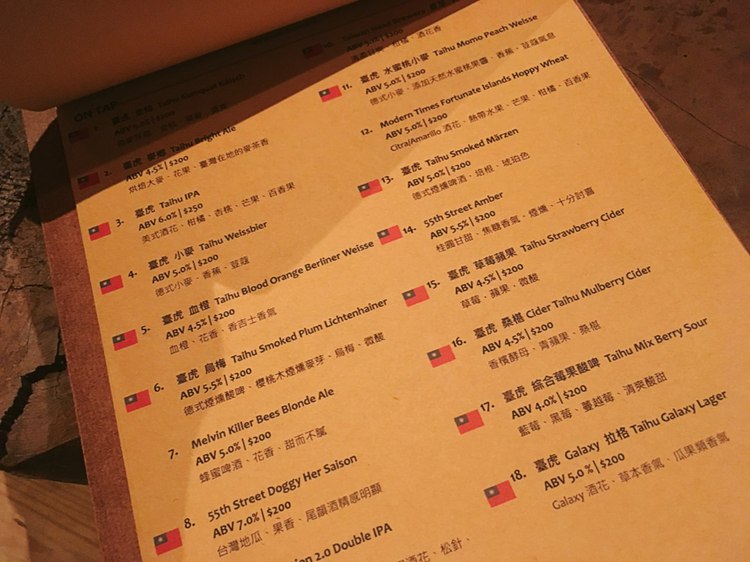 ON TAP
1. 臺虎
ABV
2. 臺虎 Taihu Bright Ale
ABV 4.5% | $200
烘焙大麥、花果、臺灣在地的麥茶香
3. 臺虎 Taihu IPA
ABV 6.0% | $250
美式酒花、柑橘、杏桃、芒果、百香果
4. 臺虎 小麥 Taihu Weissbier
ABV 5.0% | $200
德式小麥、香蕉、荳蔻
5. 臺虎 血橙 Taihu Blood Orange Berliner Weisse
ABV 4.5% | $200
血橙、花香、香吉士香氣
6. 臺虎 烏梅 Taihu Smoked Plum Lichtenhainer
ABV 5.5% | $200
德式煙燻酸啤、櫻桃木煙燻麥芽、烏梅、微酸
7. Melvin Killer Bees Blonde Ale
ABV 5.0% | $200
蜂蜜啤酒、花香、甜而不膩
8. 55th Street Doggy Her Saison
ABV 7.0% | $200
台灣地瓜、果香、尾韻酒精感明顯
2.0 Double IPA
酒花、松針、
10.
ABV | $200
柑橘、酒花香
11. 臺虎 水蜜桃小麥 Taihu Momo Peach Weisse
ABV 5.0% | $200
德式小麥、添加天然水蜜桃果醬、香蕉、荳蔻氣息
12. Modern Times Fortunate Islands Hoppy Wheat
ABV 5.0% | $200
Citra/Amarillo 酒花、熱帶水果、芒果、柑橘、百香果
13. 臺虎 Taihu Smoked Märzen
ABV 5.0% | $200
德式煙燻啤酒、培根、琥珀色
14. 55th Street Amber
ABV 5.5% | $200
桂圓甘甜、焦糖香氣、煙燻、十分討喜
15. 臺虎 草莓蘋果 Taihu Strawberry Cider
ABV 4.5% | $200
草莓、蘋果、微酸
16. 臺虎 桑椹 Cider Taihu Mulberry Cider
ABV 4.5% | $200
香檳酵母、青蘋果、桑椹
17. 臺虎 綜合莓果酸啤 Taihu Mix Berry Sour
ABV 4.0% | $200
藍莓、黑莓、蔓越莓、清爽酸甜
18. 臺虎 Galaxy 拉格 Taihu Galaxy Lager
ABV 5.0 % | $200
Galaxy 酒花、草本香氣、瓜果類香氣